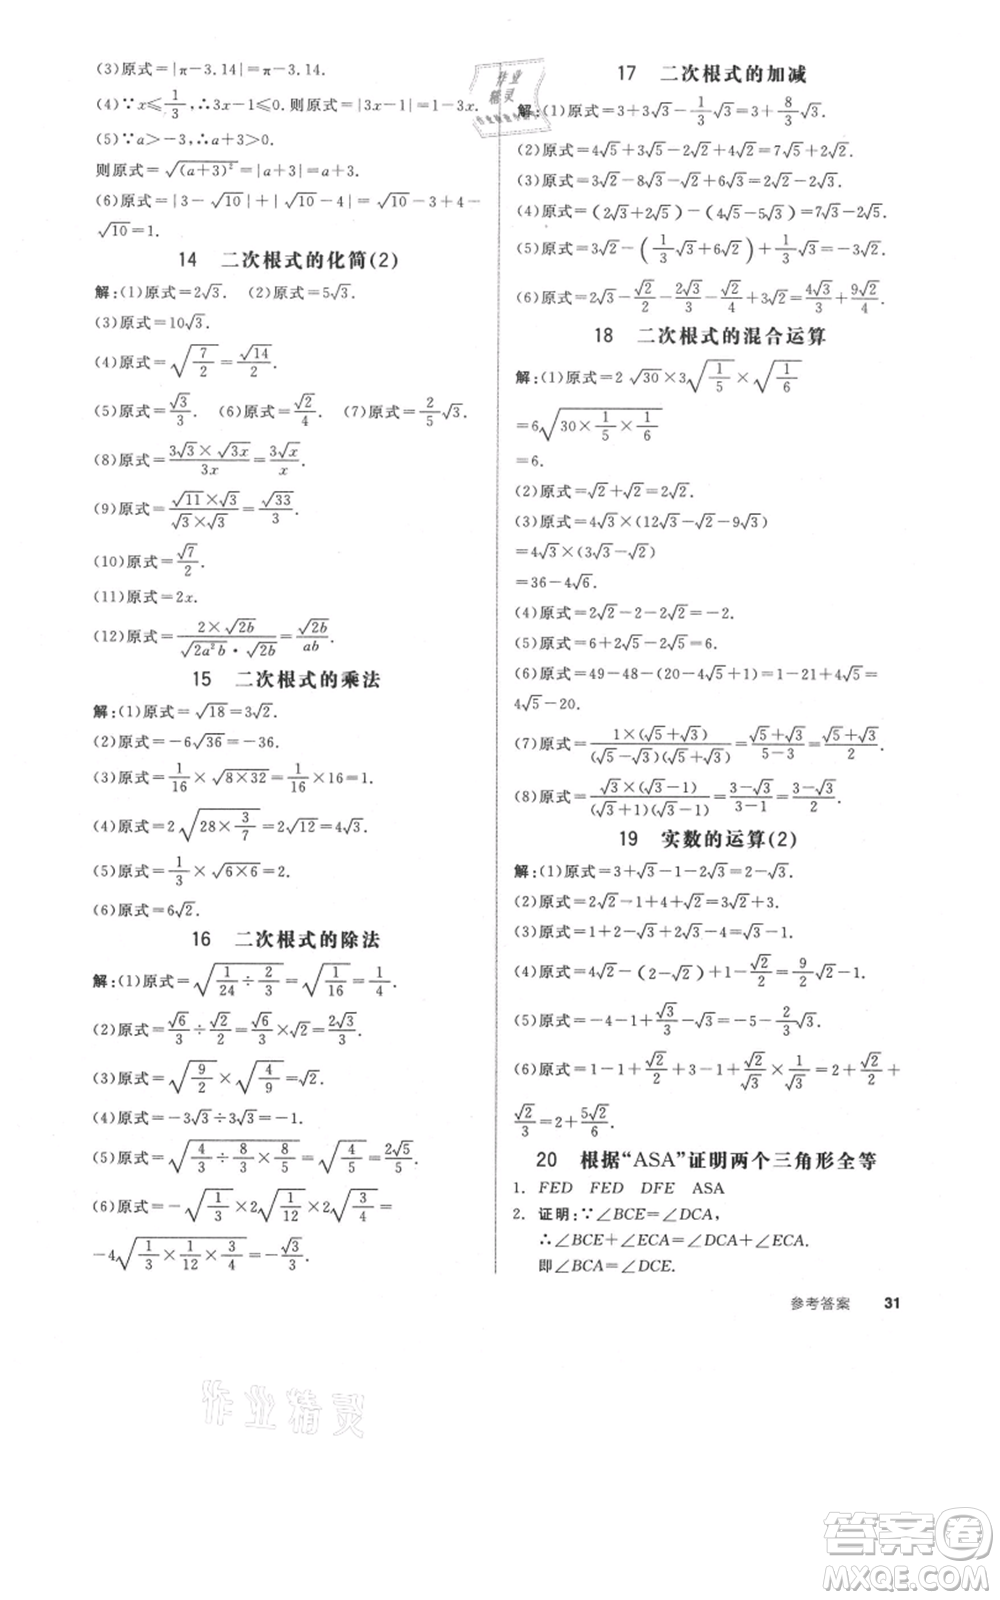 (3)原式=|π-3.14|=π-3.14.
(4)∵x≤1/3,∴3x-1≤0.则原式=|3x-1|=1-3x.
(5)∵a>-3,∴a+3>0.
则原式=√(a+3)²=|a+3|=a+3.
(6)原式=|3-√10|+|√10-4|=√10-3+4-
√10=1.
14 二次根式的化简(2)
解:(1)原式=2√3. (2)原式=5√3.
(3)原式=10√3.
(4)原式=√(7/2)=√14/2.
(5)原式=√3/3. (6)原式=√2/4. (7)原式=2/5√3.
(8)原式=(3√3×√3x)/3x=3√x/x.
(9)原式=(√11×√3)/(√3×√3)=√33/3.
(10)原式=√7/2.
(11)原式=2x.
(12)原式=(2×√2b)/(√2a²b·√2b)=√2b/ab.
15 二次根式的乘法
解:(1)原式=√18=3√2.
(2)原式=-6√36=-36.
(3)原式=1/16×√(8×32)=1/16×16=1.
(4)原式=2√(28×3/7)=2√12=4√3.
(5)原式=1/3×√(6×6)=2.
(6)原式=6√2.
16 二次根式的除法
解:(1)原式=√(1/24÷2/3)=√(1/16)=1/4.
(2)原式=√6/3÷√2/2=√6/3×√2=2√3/3.
(3)原式=√(9/2)×√(4/9)=√2.
(4)原式=-3√3÷3√3=-1.
(5)原式=√(4/3÷8/3×8/5)=√(4/5)=2√5/5.
(6)原式=-√(1/3)×2√(1/12)×2√(3/4)=
-4√(1/3×1/12×3/4)=-√3/3.
17 二次根式的加减
解:(1)原式=3+3√3-1/3√3=3+8/3√3.
(2)原式=4√5+3√5-2√2+4√2=7√5+2√2.
(3)原式=3√2-2√3-√2+4√3=2√2-2√3.
(4)原式=(2√3+2√5)-(√5-5√3)=7√3-√5.
(5)原式=3√2-(1/3√3+6√2)+1/3√3=-3√2.
(6)原式=2√3-√2/2-2√3/3-√2/4+3√2=4√3/3+9√2/4.
18 二次根式的混合运算
解:(1)原式=2√30×3√(1/5)×√(1/6)
=6√(30×1/5×1/6)
=6.
(2)原式=√2+√2=2√2.
(3)原式=4√3×(12√3-√2-9√3)
=4√3×(3√3-√2)
=36-4√6.
(4)原式=2√2-2-2√2=-2.
(5)原式=6+2√5-2√5=6.
(6)原式=49-48-(20-4√5+1)=1-21+4√5=
4√5-20.
(7)原式=1×(√5+√3)/(√5-√3)(√5+√3)=(√5+√3)/(5-3)=(√5+√3)/2.
(8)原式=√3×(√3-1)/(√3+1)(√3-1)=(3-√3)/(3-1)=(3-√3)/2.
19 实数的运算(2)
解:(1)原式=3+√3-1-2√3=2-√3.
(2)原式=2√2-1+4+√2=3√2+3.
(3)原式=1+2-√3-2√3=3-3√3.
(4)原式=3√2-(2-√2)+1+√2/2=9/2√2-1.
(5)原式=-4-1+√3/3-√3=-5-2√3/3.
(6)原式=1-1+√2/2+3-1+√2/3×1/√3×√3=2+√2/2+
√2/3=2+5√2/6.
20 根据“ASA”证明两个三角形全等
1. FED FED DFE ASA
2. 证明:∵∠BCE=∠DCA,
∴∠BCE+∠ECA=∠DCA+∠ECA.
即∠BCA=∠DCE.
参考答案 31
作业精灵
答案卷